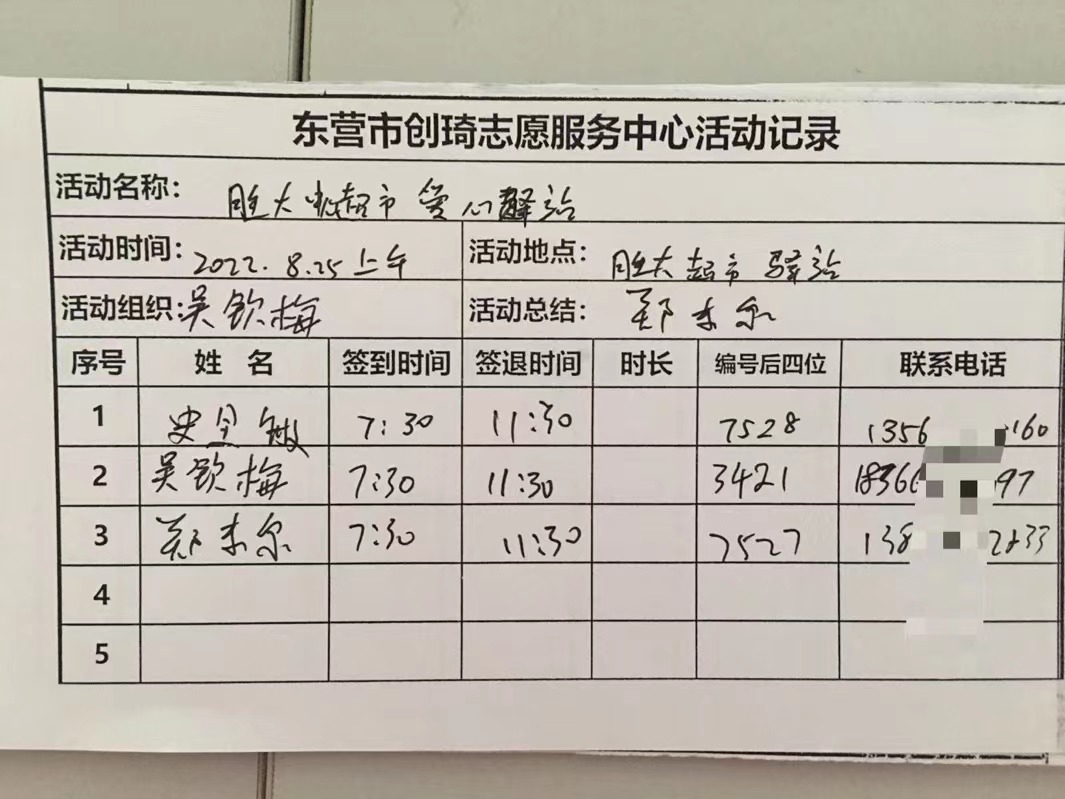 东营市创琦志愿服务中心活动记录
活动名称: 胜大超市爱心驿站
活动时间: 2022.8.25上午 活动地点: 胜大超市驿站
活动组织: 吴钦梅 活动总结:
序号 姓名 签到时间 签退时间 时长 编号后四位 联系电话
1 7:30 11:30 7528 1356 160
2 吴钦梅 7:30 11:30 3421 1836 97
3 7:30 11:30 7527 138 2833
4
5